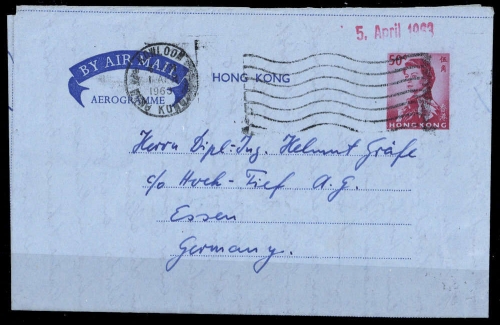 5. April 1963
BY AIR MAIL
AEROGRAMME
KOWLOON
1963
HONG KONG
50c
HONG KONG
Herrn Dipl-Ing. Helmut Gräfe
c/o Hoch-Tief A.G.
Essen
Germany.